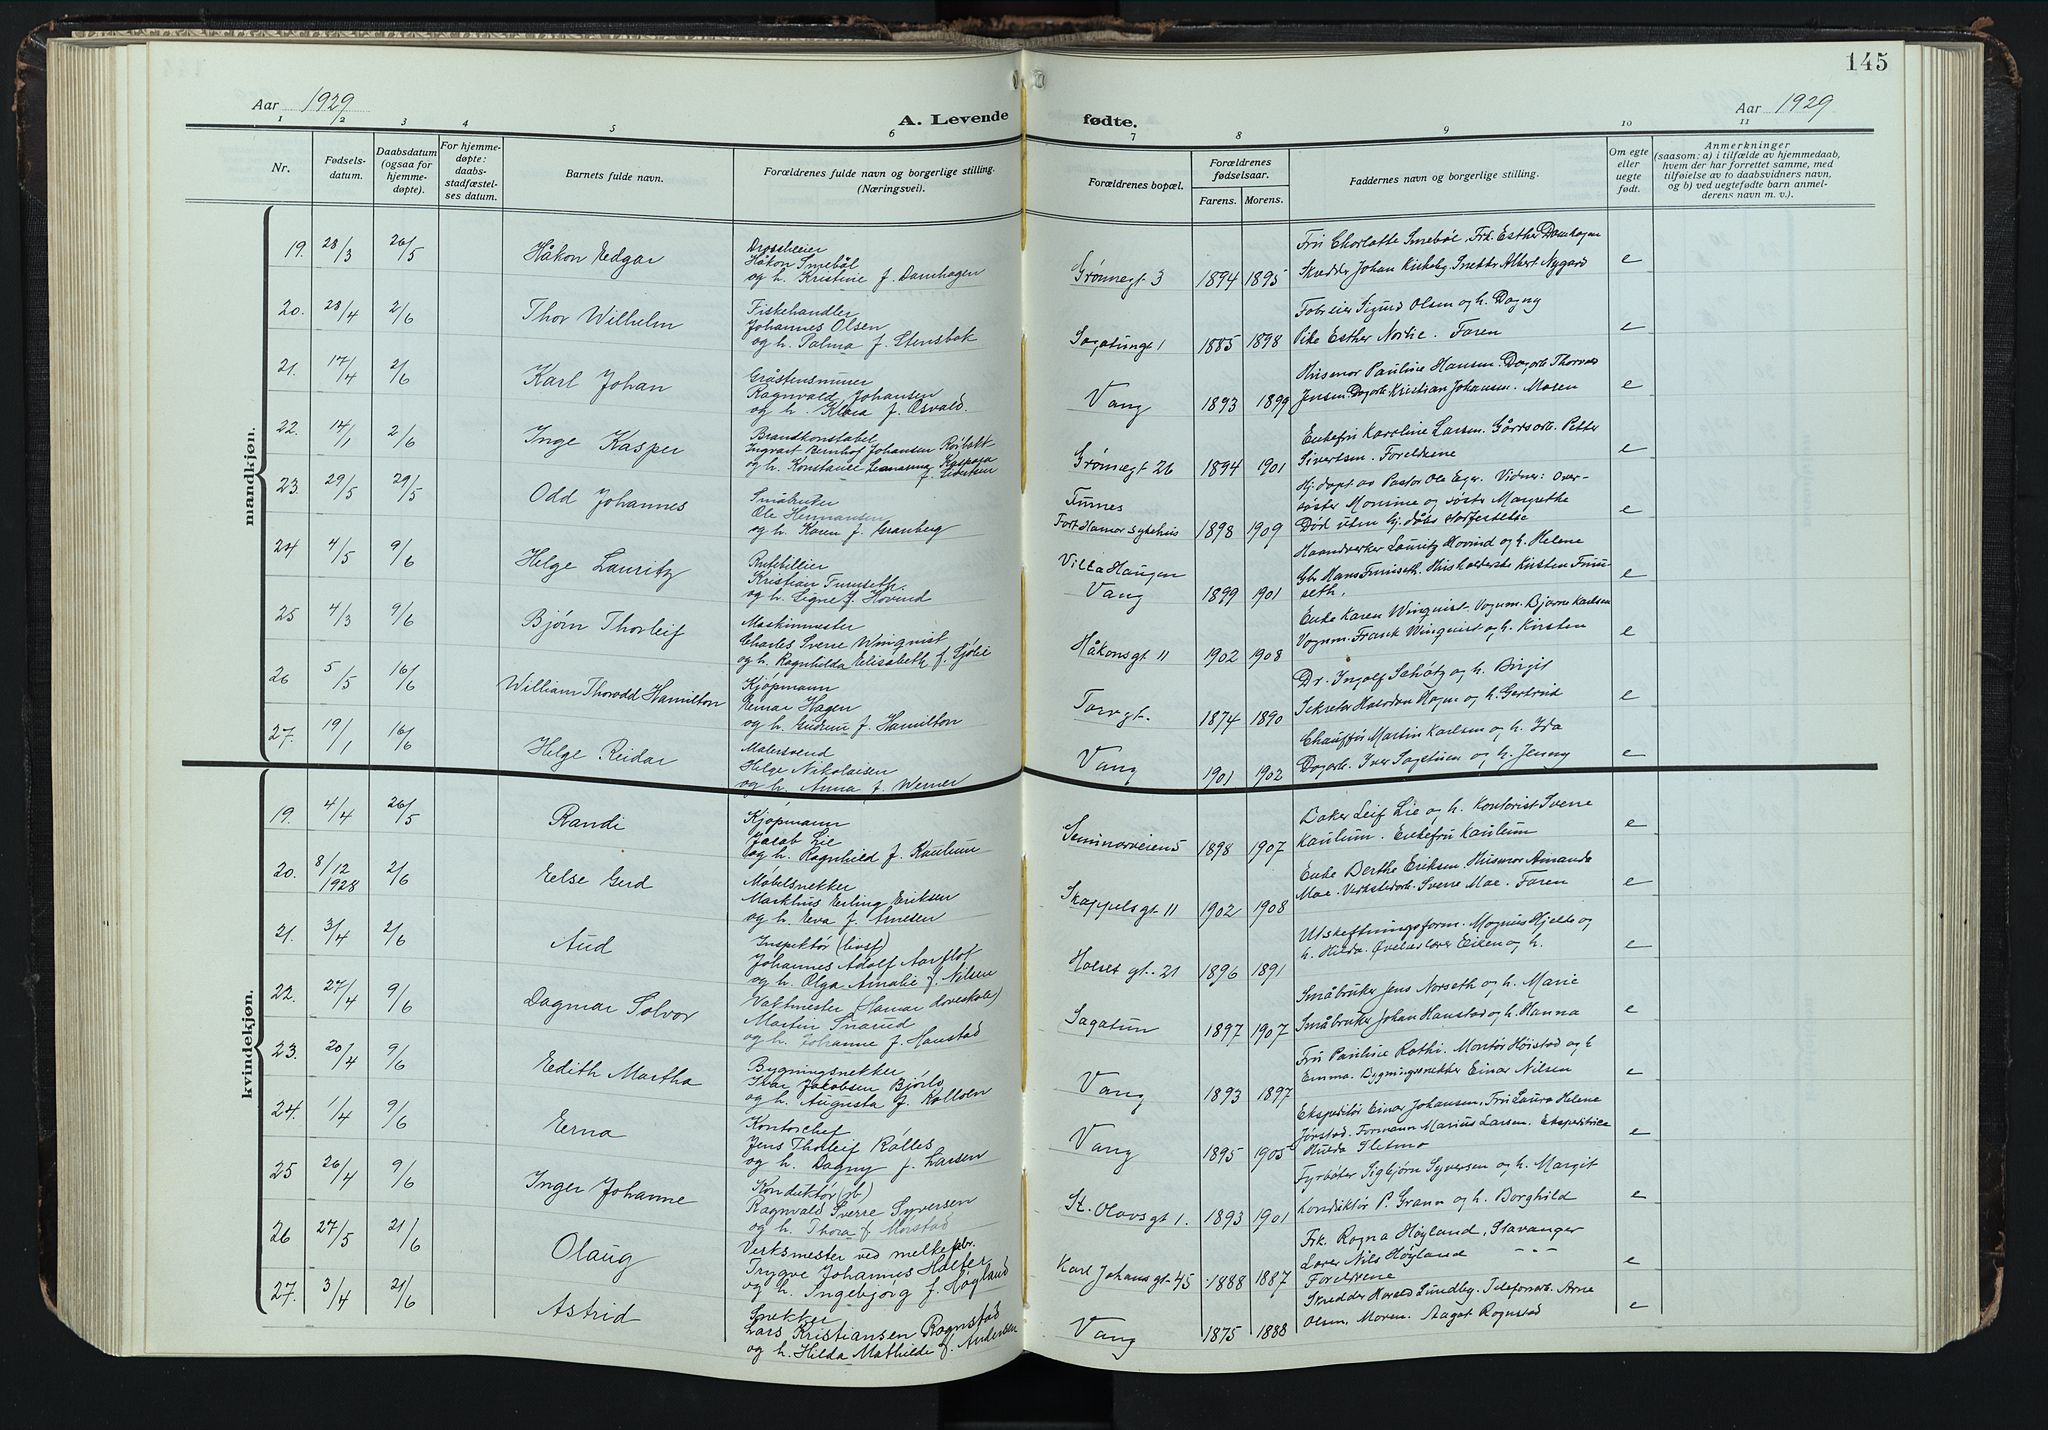 145
Aar 1929
A. Levende fødte.
Aar 1929
1 2 3 4 5 6 7 8 9 10 11
Nr.
Fødsels-
datum.
Daabsdatum
(ogsaa for
hjemme-
døpte).
For hjemme-
døpte:
daabs-
stadfæstel-
ses datum.
Barnets fulde navn.
Forældrenes fulde navn og borgerlige stilling.
(Næringsvei).
Forældrenes bopæl.
Forældrenes
fødselsaar.
Farens. Morens.
Faddernes navn og borgerlige stilling.
Om egte
eller
uegte
født.
Anmerkninger
(saasom: a) i tilfælde av hjemmedaab,
hvem der har forrettet samme, med
tilføielse av to daabsvidners navn,
og b) ved uegtefødte barn anmel-
derens navn m. v.).
mandkjøn.
19. 28/3 26/5 Håkon Edgar
Drosjeeier
Håkon Smebøl
og h. Kristine f. Damhagen
Grønnegt 3 1894 1895
Fru Charlotte Smebøl, Frk. Esther Damhagen
Skredder Johan Kirkeby. Snekker Albert Nygård
e
20. 28/4 2/6 Thor Wilhelm
Fiskehandler
Johannes Olsen
og h. Palma f. Stensbak
Sagatungt 1 1885 1898
Fabreier Sigurd Olsen og h. Dagny
Pike Esther Nortie. Faren
e
21. 17/4 2/6 Karl Johan
Gråstensmurer
Ragnvald Johansen
og h. Klara f. Osvald.
Vang 1893 1899
Husmor Pauline Hansen. Dagarb. Thorvas
Jensen. Dagarb. Kristian Johansen. Moren
e
22. 14/1 2/6 Inge Kasper
Brandkonstabel
Ingvart Bernhof Johansen Røibakk
og h. Konstanse Leonarma Kaspara
f. Sivertsen
Grønnegt 26 1894 1901
Enkefru Karoline Larsen. Gårdsarb. Petter
Sivertsen. Foreldrene
e
23. 29/5 29/5 Odd Johannes
Småbruker
Ole Hermansen
og h. Karen f. Granberg
Furnes
Fort. Hamar sykehus 1898 1909
Hj. døpt av Pastor Ole Eger. Vidner: Over-
søster Momine og søster Margrethe
Død uten hj. dåbs stadfestelse
e
24 4/5 9/6 Helge Lauritz
Rutebileier
Kristian Furuseth
og h. Signe f. Hovind
Villa Haugen
Vang 1899 1901
Haandverker Lauritz Hovind og h. Helene
Gbr Hans Furuseth. Husholderske Kirsten Furu-
seth.
e
25 4/3 9/6 Bjørn Thorleif
Maskinmester
Charles Sverre Winquist
og h. Ragnhilda Elisabeth f. Sjølie
Håkonsgt 11 1902 1908
Enke Karen Winquist. Vognm. Bjarne Karlsen
Vognm. Frank Winquist og h. Kirsten
e
26 5/5 16/6 William Thorodd Hamilton
Kjøpmann
Reinar Hagen
og h. Gudrun f. Hamilton
Torvgt. 1874 1890
Dr. Ingolf Schøtz og h. Birgit
Sekretær Halvdan Hagne og h. Gertrud
e
27. 19/1 16/6 Helge Reidar
Malersvend
Helge Nikolaisen
og h. Anna f. Werner
Vang 1901 1902
Chauffør Martin Karlsen og h. Ida
Dagarb. Iver Sagstuen og h. Jenny
e
kvindekjøn.
19. 4/4 26/5 Randi
Kjøpmann
Jacob Lie
og h. Ragnhild f. Kaulum
Seminarveien 5 1898 1907
Baker Leif Lie og h. Kontorist Sverre
Kaulum. Enkefru Kaulum
e
20. 8/12 1928 2/6 Else Gerd
Møbelsnekker
Markhus Erling Eriksen
og h. Eva f. Arnesen
Skappelsgt 11 1902 1908
Enke Berthe Eriksen. Husmor Amanda
Moe. Verkstedarb. Sverre Moe. Faren
e
21. 3/4 2/6 Aud
Inspektør (livsf)
Johannes Adolf Aarflot
og h. Olga Amalie f. Nilsen
Holsetgt. 21 1896 1891
Utskiftningsform. Magnus Hjelte og
h. Hilda. Øvelseslærer Eiken og h.
e
22. 27/4 9/6 Dagmar Solvor
Vaktmester (Hamar døveskole)
Martin Snarud
og h. Johanne f. Hanstad
Sagatun 1897 1907
Småbruker Jens Norseth og h. Marie
Småbruker Johan Hanstad og h. Hanna
e
23. 20/4 9/6 Edith Martha
Bygningsnekker
Ivar Jakobsen Bjørlo
og h. Augusta f. Kolloen
Vang 1893 1897
Fru Pauline Rathi. Montør Høistad og h
Emma. Bygningssnekker Einar Nilsen
e
24. 1/4 9/6 Erna
Kontorchef
Jens Thorleif Ralles
og h. Dagny f. Larsen
Vang 1895 1905
Ekspeditør Einar Johansen, Fru Laura Helene
Jørstad. Formann Marius Larsen. Ekspeditrice
Hulda Sletmo
e
25 26/4 9/6 Inger Johanne
Konduktør (jb)
Ragnvald Sverre Syversen
og h. Thora f. Mørstad
St. Olavsgt 1. 1893 1901
Fyrbøter Sigbjørn Syversen og h. Margit
Konduktør P. Grann og h. Borghild
e
26 27/5 21/6 Olaug
Verksmester ved melkefabr.
Trygve Johannes Halfer
og h. Ingebjørg f. Høyland
Karl Johansgt 45 1888 1887
Frk. Ragna Høyland, Stavanger
Lærer Nils Høyland - " -
Foreldrene
e
27. 3/4 21/6 Astrid
Snekker
Lars Kristiansen Ragnstad
og h. Hilda Mathilde f. Andersen
Vang 1875 1888
Skredder Harald Sundby. Telefonarb. Arne
Olsen, Moren. Aagot Rognstad
e